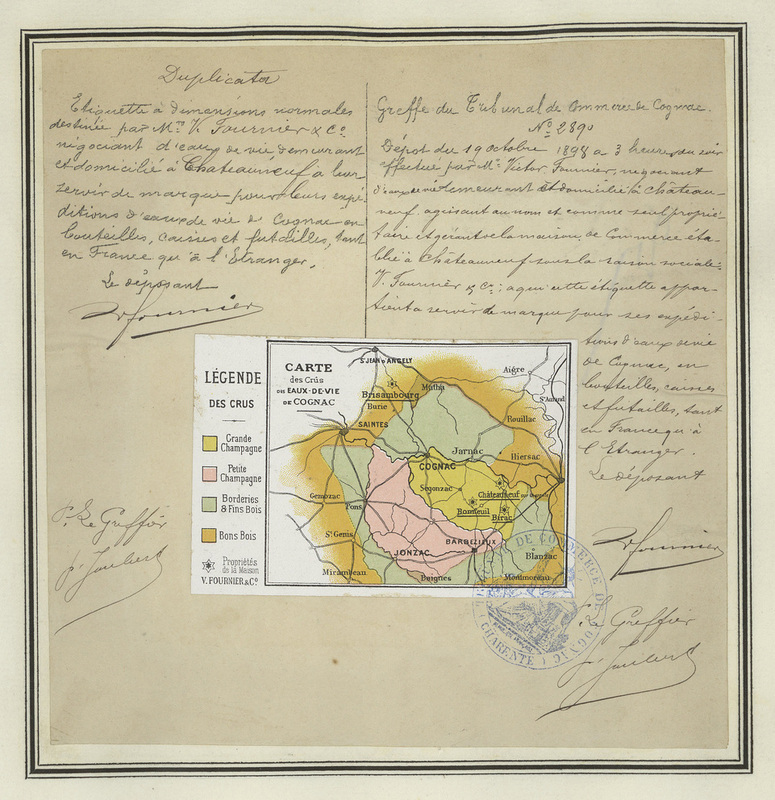 Duplicata
Etiquette à dimensions normales
destinée par Mrs V. Fournier & Co
négociant d'eaux de vie demeurant
et domicilié à Chateauneuf à leur
servir de marque pour leurs expé-
ditions d'eaux de vie de Cognac en
bouteilles, caisses et futailles, tant
en France qu'à l'Etranger.
Le déposant
V Fournier
Greffe du Tribunal de Commerce de Cognac.
No 2890
Dépot du 19 octobre 1898 à 3 heures du soir
effectué par Mr Victor Fournier, négociant
d'eaux de vie demeurant et domicilié à Château-
neuf agissant au nom et comme seul proprié-
taire et gérant de la maison de Commerce éta-
blie à Châteauneuf sous la raison sociale:
V. Fournier & Co; à qui cette étiquette appar-
tient à servir de marque pour ses expédi-
tions d'eaux de vie
de Cognac, en
bouteilles, caisses
et futailles, tant
en France qu'à
l'Etranger.
Le déposant
V Fournier
LÉGENDE
DES CRUS
Grande
Champagne
Petite
Champagne
Borderies
& Fins Bois
Bons Bois
Propriétés
de la Maison
V. FOURNIER & Co
CARTE
des Crûs
DES EAUX-DE-VIE
DE COGNAC
St JEAN D'ANGELY
Aigre
St Amand
Matha
Brisambourg
Burie
Rouillac
SAINTES
Jarnac
Hiersac
COGNAC
Segonzac
Châteauneuf sur Charente
Gemozac
Pons
Bonneuil
Birac
St Genis
BARBEZIEUX
JONZAC
Blanzac
Mirambeau
Baignes
Montmoreau
P. Le Greffier
P. Joubert
TRIBUNAL DE COMMERCE DE COGNAC
(CHARENTE)
Le Greffier
P. Joubert